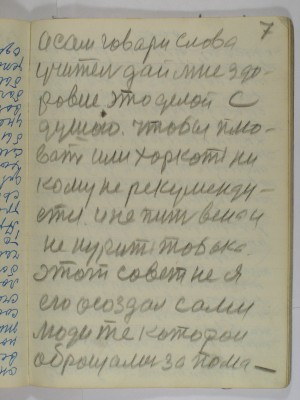 7
и сам говари слова
учител дай мне здо-
ровие это делой с
душою. чтобы плю-
ват или харкоти ни
кому не рекуменду-
ети. и не пит вено и
не курит товака.
этот совет не я
его создал сами
люди те которои
оброщалис за пома-